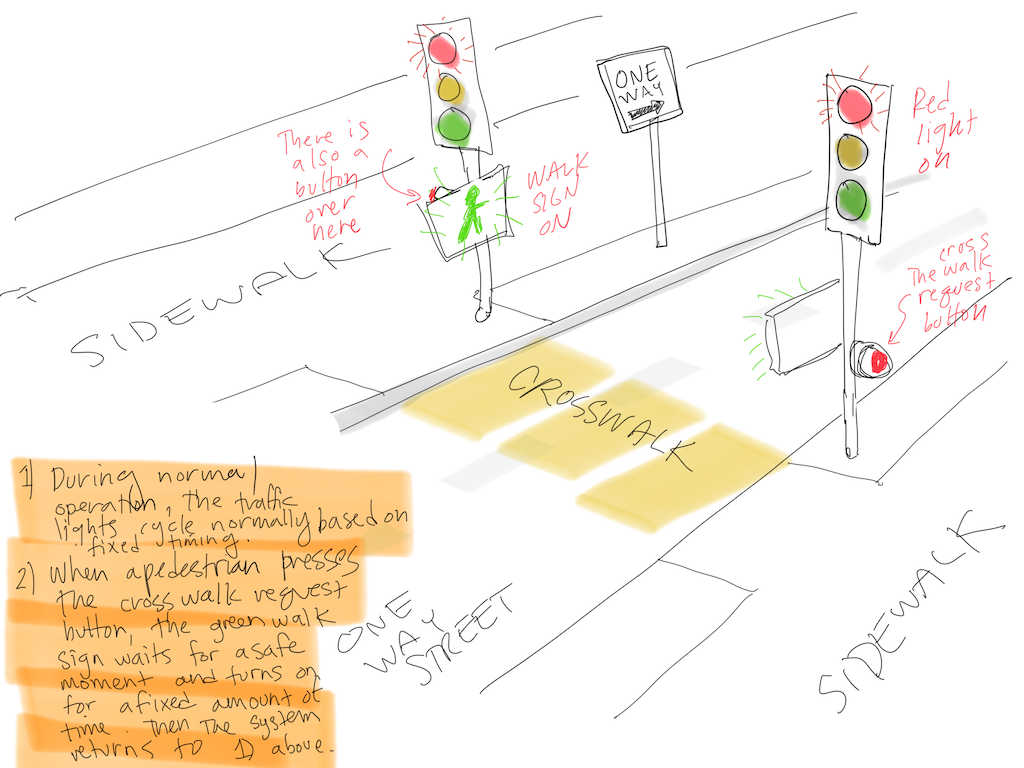 ONE
WAY
There is
also a
button
over
here
WALK
SIGN
ON
Red
light
on
SIDEWALK
cross
The walk
request
button
CROSSWALK
1) During normal
operation, the traffic
lights cycle normally based on
fixed timing.
2) When a pedestrian presses
the cross walk request
button, the green walk
sign waits for a safe
moment and turns on
for a fixed amount of
time. Then the system
returns to 1) above.
ONE
WAY
STREET
SIDEWALK